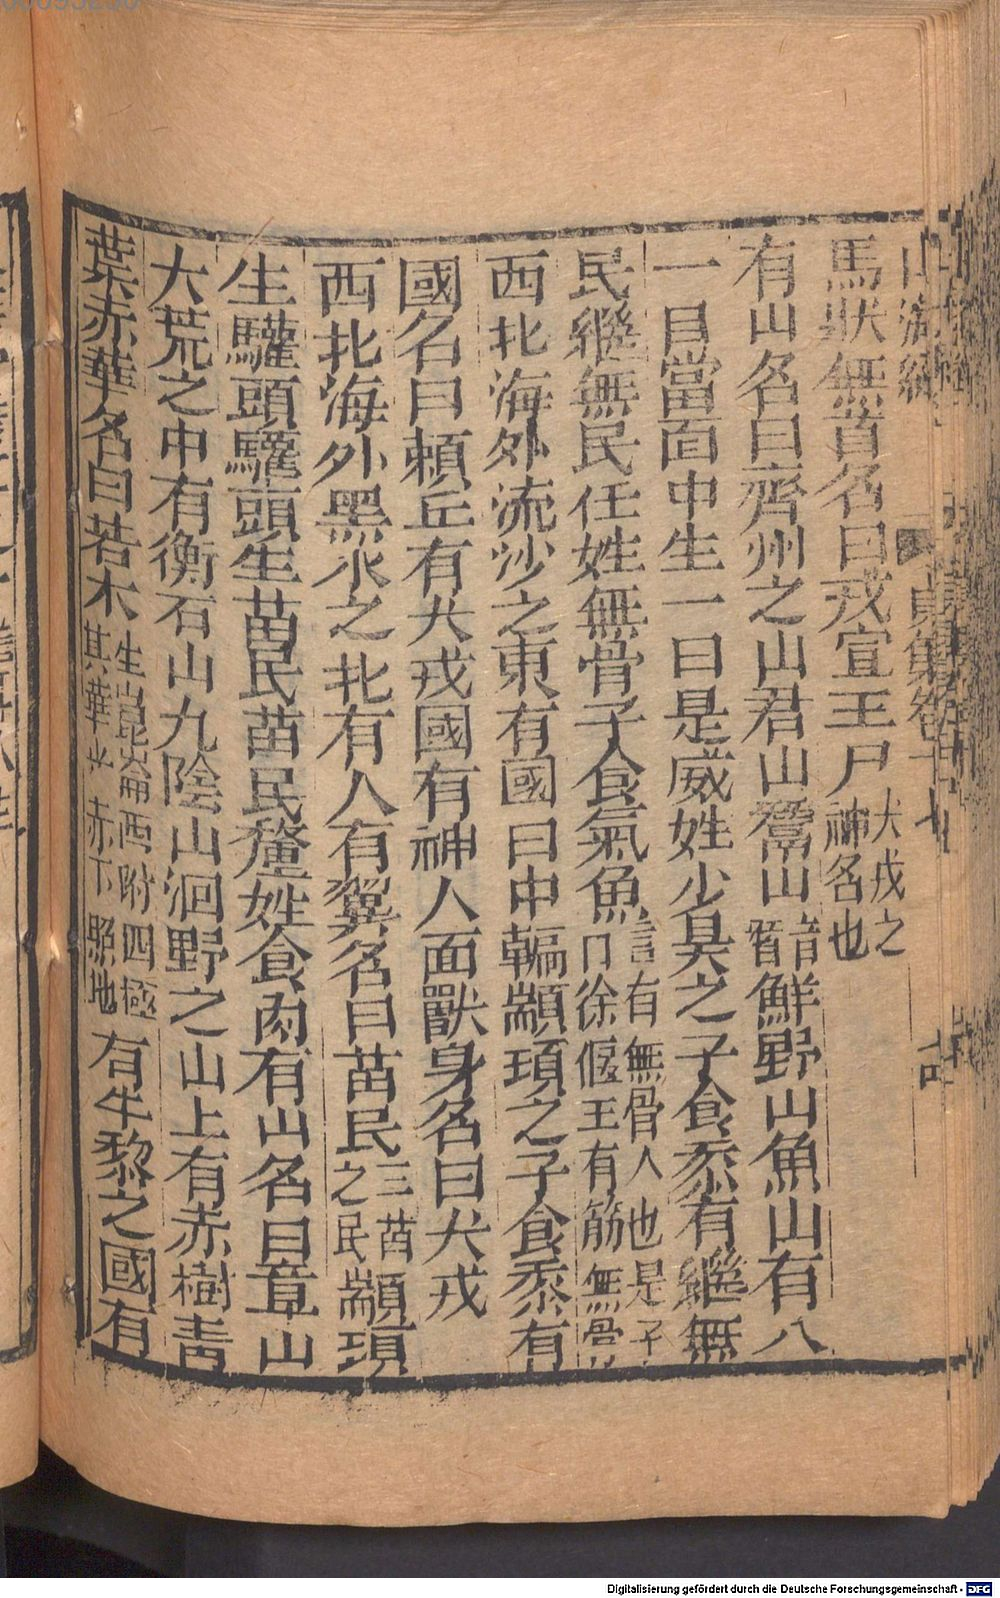 山海經
馬狀無首名曰戎宣王尸犬戎之神名也
有山名曰齊州之山君山鬵山音潛鮮野山魚山有人
一目當面中生一曰是威姓少昊之子食黍有繼無
民繼無民任姓無骨子食氣魚言有無骨人也尸子曰徐偃王有筋無骨
西北海外流沙之東有國曰中輻顓頊之子食黍有
國名曰賴丘有犬戎國有神人面獸身名曰犬戎
西北海外黑水之北有人有翼名曰苗民三苗之民顓頊
生驩頭驩頭生苗民苗民釐姓食肉有山名曰章山
大荒之中有衡石山九陰山泂野之山上有赤樹青
葉赤華名曰若木生崑崙西附西極其華光赤下照地有牛黎之國有
Digitalisierung gefördert durch die Deutsche Forschungsgemeinschaft - DFG